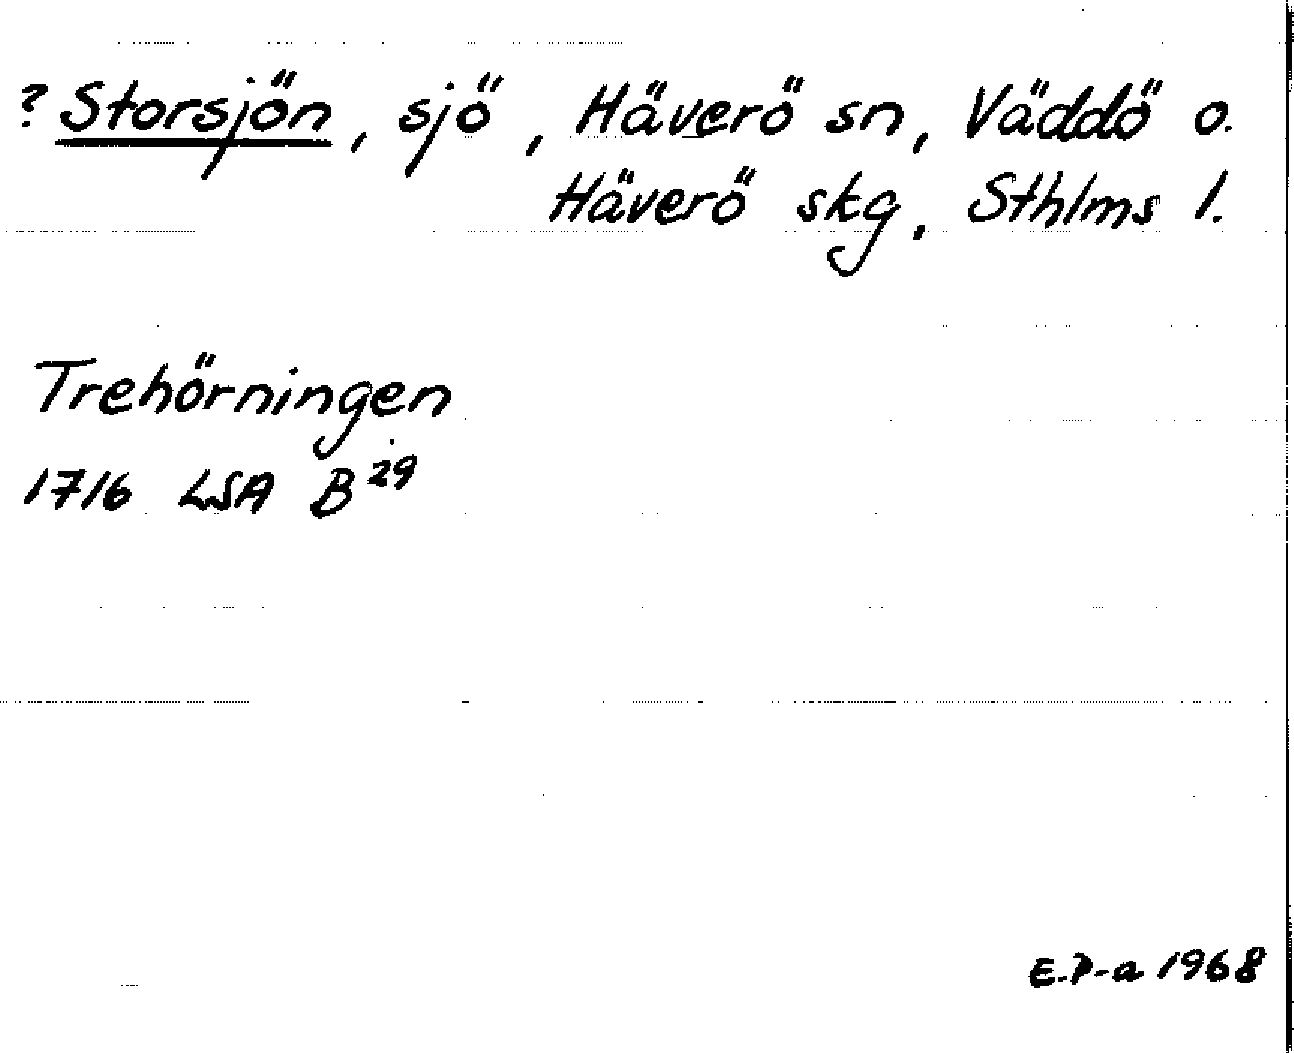 ? Storsjön, sjö, Häverö sn, Väddö o.
Häverö skg, Sthlms l.
Trehörningen
1716 LSA B 29
E.P-a 1968